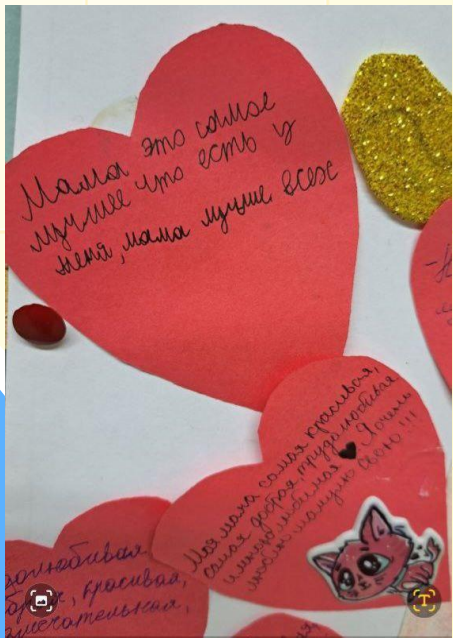 Мама это самое
лучшее что есть у
меня, мама лучше всех
Моя мама самая красивая,
самая добрая, трудолюбивая
и многолюбимая Я очень
люблю мамулю свою!!!
долюбивая
красивая,
замечательная,